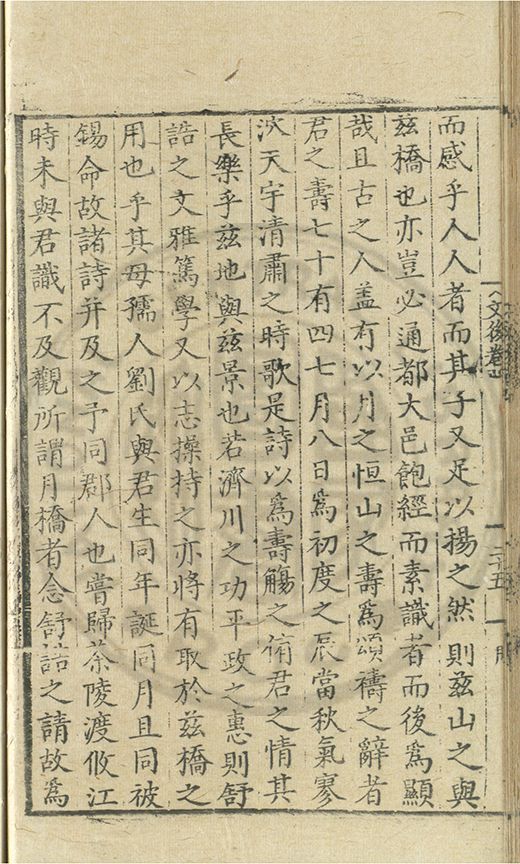 而感乎人人者而其子又足以揚之然則玆山之與
玆橋也亦豈必通都大邑飽經而素識者而後爲顯
哉且古之人盖有以月之恒山之壽爲頌禱之辭者
君之壽七十有四七月八日爲初度之辰當秋氣寥
泬天宇清肅之時歌是詩以爲壽觴之侑君之情其
長樂乎玆地與玆景也若濟川之功平政之惠則舒
誥之文雅篤學又以志操持之亦將有取於玆橋之
用也乎其母孺人劉氏與君生同年誕同月且同被
錫命故諸詩并及之予同郡人也嘗歸茶陵渡攸江
時未與君識不及觀所謂月橋者念舒誥之請故爲
文後卷
二十五